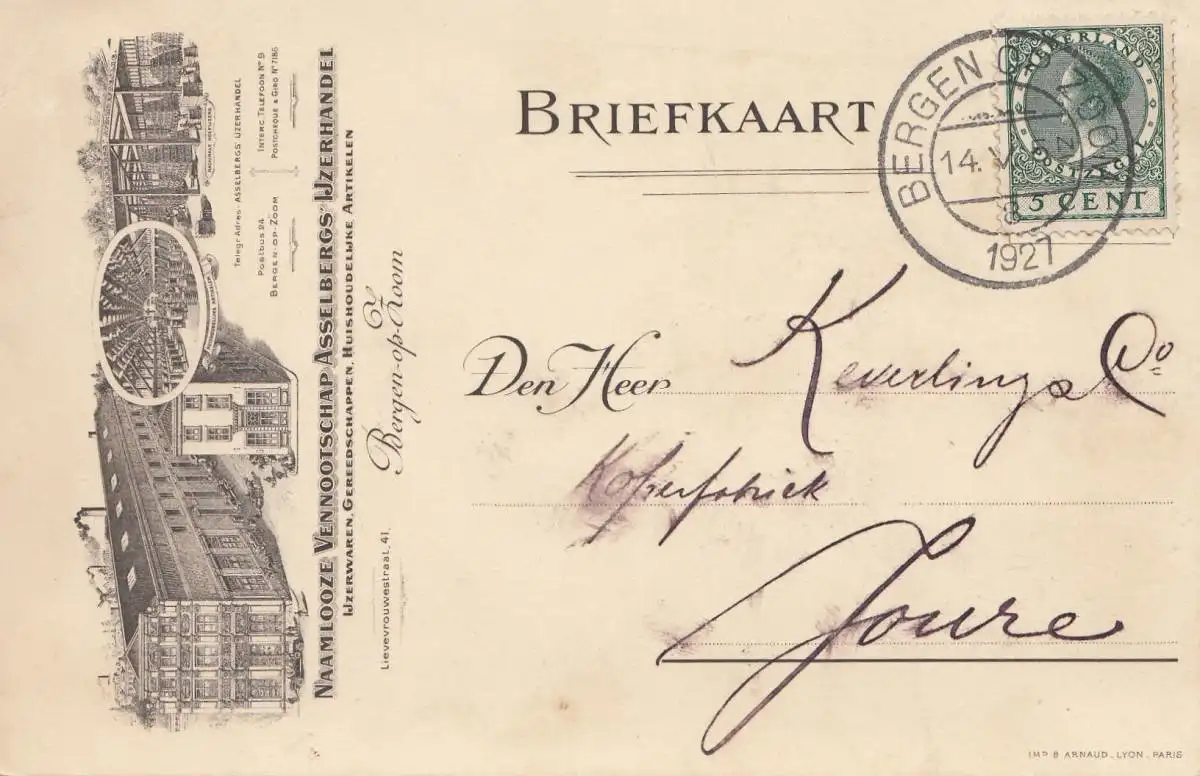 BRIEFKAART
NEDERLAND
POSTZEGEL
5 CENT
BERGEN OP ZOOM
14.V
8
1927
Den Heer Keverling & Co
Koperfabriek
Joure
NAAMLOOZE VENNOOTSCHAP ASSELBERGS' IJZERHANDEL
IJZERWAREN, GEREEDSCHAPPEN, HUISHOUDELIJKE ARTIKELEN
Bergen-op-Zoom
Lievevrouwestraat. 41.
Telegr Adres - ASSELBERGS' IJZERHANDEL
Postbus 24
BERGEN-OP-ZOOM
INTERC. TELEFOON Nº 9
POSTCHEQUE & GIRO Nº 7186
IMP. B ARNAUD. LYON. PARIS